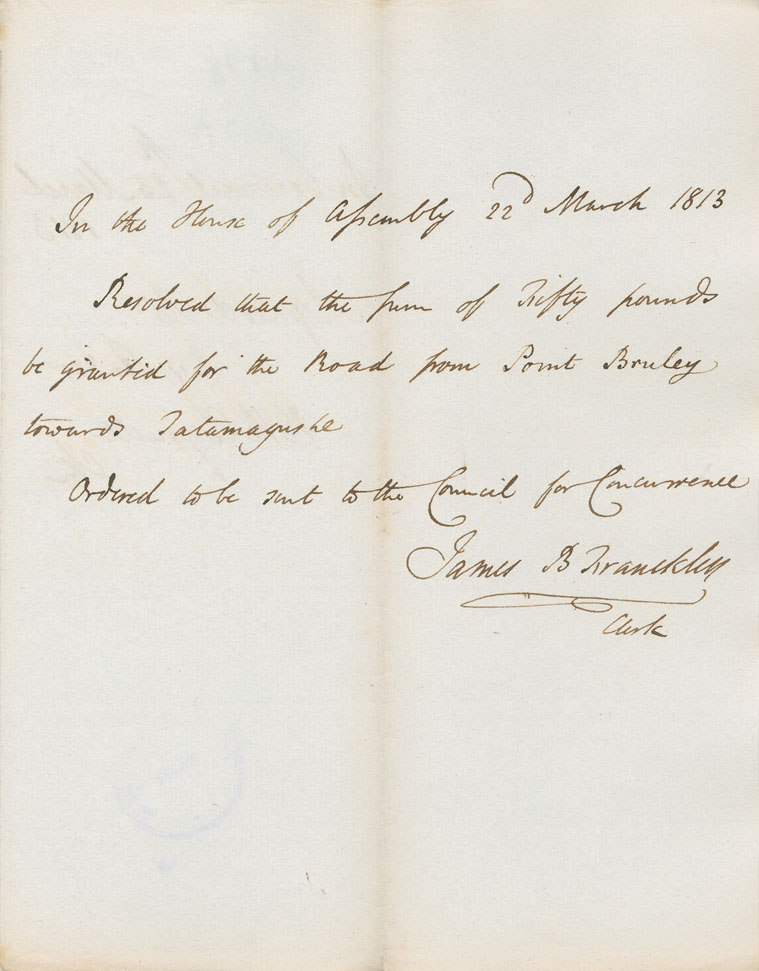 In the House of Assembly 22d March 1813
Resolved that the sum of Fifty pounds
be granted for the Road from Point Bruley
towards Tatamagushe
Ordered to be sent to the Council for Concurrence
James B Franckley
Clerk